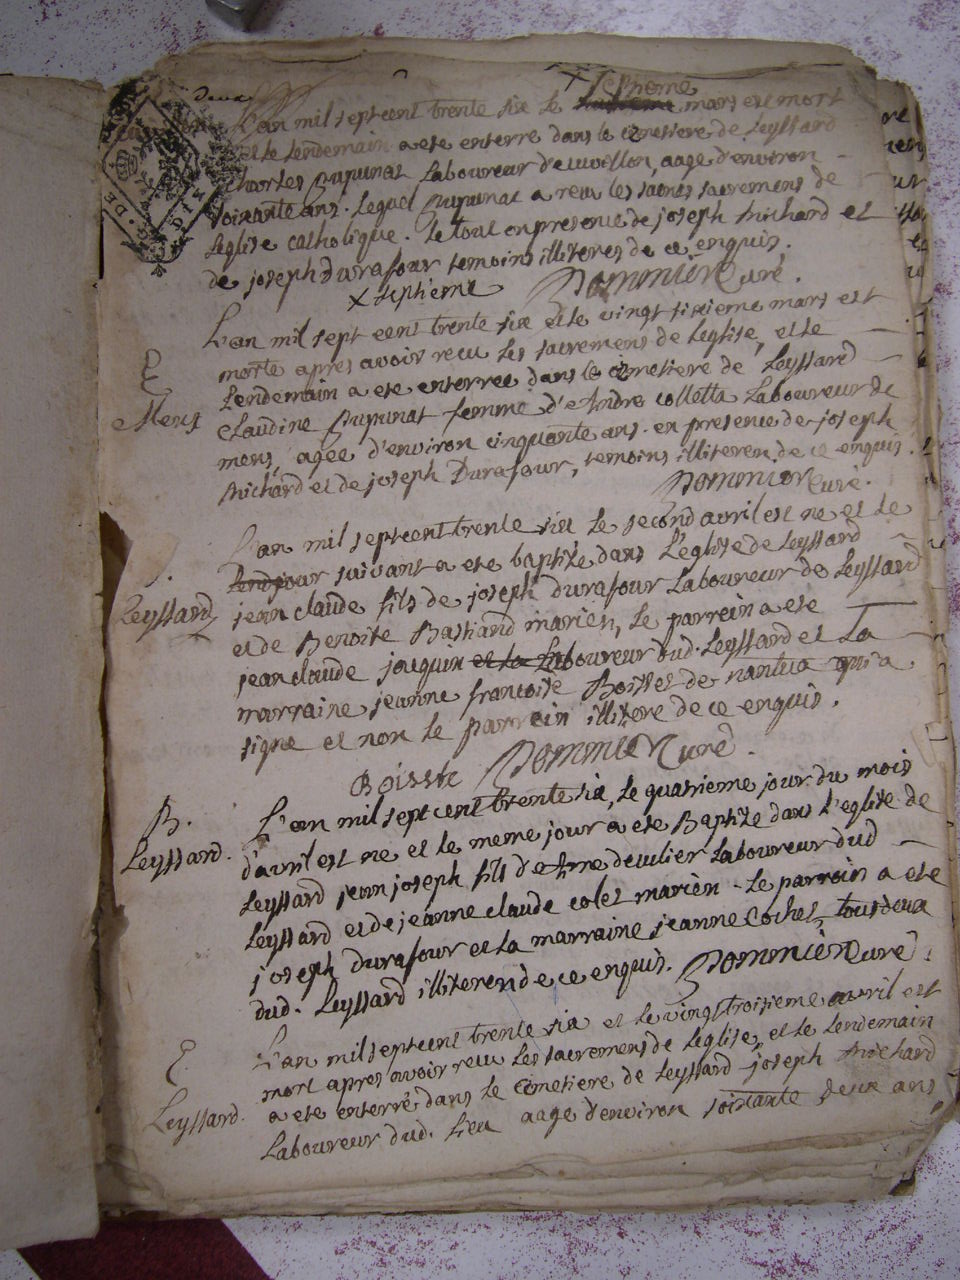 deux
x septieme
L'an mil sept cent trente six le mars est mort
et le lendemain a ete enterre dans le cimetiere de Leyssard
Charles Pupunat Laboureur d'euvollon, aagé d'environ
soixante ans. Lequel Pupunat a reçu les sacrements de
Leglise catholique. Le tout en presence de joseph Michard et
de joseph Durafour temoins illiteres de ce enquis.
x septieme Dommier curé.
L'an mil sept cent trente six et le vingt sixieme mars est
morte apres avoir recu les sacremens de Leglise, et le
E
Lendemain a ete enterrée dans le cimetiere de Leyssard
Mens
Claudine Pupunat femme d'Andre colletta Laboureur de
mens, agée d'environ cinquante ans. en presence de joseph
Michard et de joseph Durafour, temoins illiteres de ce enquis.
Dommier curé.
L'an mil sept cent trente six le second avril est ne et le
jour suivant a ete baptizé dans L'eglise de Leyssard
Leyssard
jean claude fils de joseph Durafour Laboureur de Leyssard
et de Benoite Bastiand mariés, le parrein a ete
jean claude joquin et la Laboureur dud. Leyssard et La
marraine jeanne francoise Boisset de nantua qui a
signe et non le parrein illitere de ce enquis.
Boisset Dommier curé.
B.
Leyssard.
L'an mil sept cent trente six, le quatrieme jour du mois
d'avril est ne et le meme jour a ete Baptizé dans L'eglise de
Leyssard jean joseph fils d' Laboureur dud
Leyssard et de jeanne claude colet mariés. Le parrein a ete
joseph Durafour et la marraine jeanne Cochet, tous deux
dud. Leyssard illiteres de ce enquis. Dommier curé.
E.
Leyssard.
L'an mil sept cent trente six et le vingt troisieme avril est
mort apres avoir recu Les sacremens de Leglise, et le Lendemain
a ete enterré dans le Cimetiere de Leyssard joseph Michard
Laboureur dud. Lieu aagé d'environ soixante deux ans